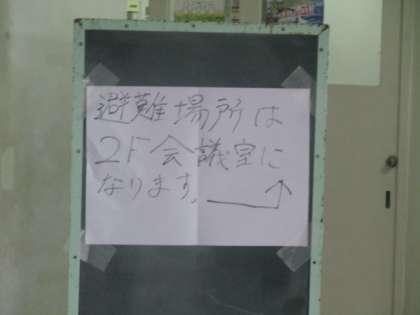 避難場所は
2F会議室に
なります。